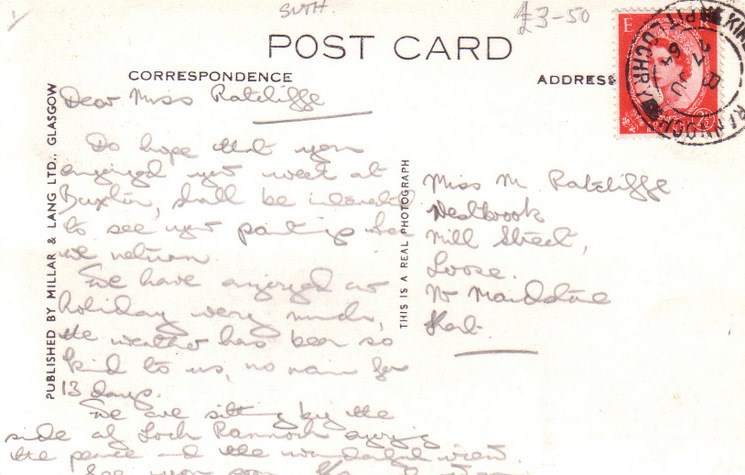 SUTH.
£3-50
POST CARD
CORRESPONDENCE
ADDRESS
Dear Miss Ratcliffe
Do hope that you
enjoyed your week at
Buxton, shall be interested
to see your paintings when
we return.
We have enjoyed our
holiday very much,
the weather has been so
kind to us, no rain for
13 days.
We are sitting by the
side of Loch Rannoch enjoying
the peace and the wonderful view.
See you soon
PUBLISHED BY MILLAR & LANG LTD., GLASGOW
THIS IS A REAL PHOTOGRAPH
Miss M. Ratcliffe
Westbrook
Mill Street,
Loose.
Nr Maidstone
Kent.
E R
RANNOCH
PITLOCHRY